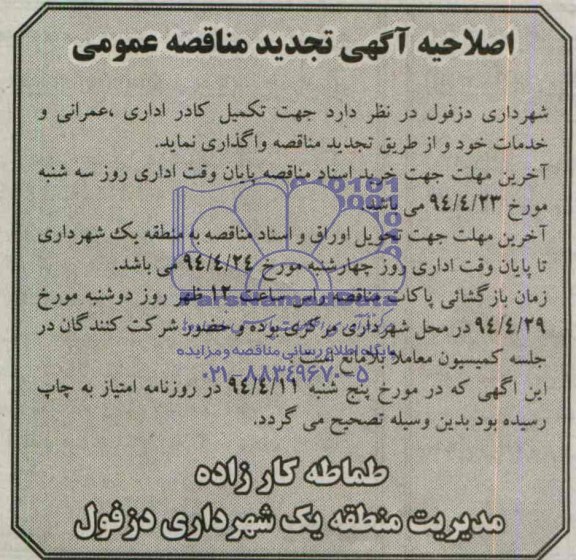 اصلاحیه آگهی تجدید مناقصه عمومی
شهرداری دزفول در نظر دارد جهت تکمیل کادر اداری ،عمرانی و
خدمات خود و از طریق تجدید مناقصه واگذاری نماید.
آخرین مهلت جهت خرید اسناد مناقصه پایان وقت اداری روز سه شنبه
مورخ ۹٤/٤/۲۳ می باشد.
آخرین مهلت جهت تحویل اوراق و اسناد مناقصه به منطقه یک شهرداری
تا پایان وقت اداری روز چهارشنبه مورخ ۹٤/٤/۲٤ می باشد.
زمان بازگشائی پاکات مناقصه راس ساعت ۱۲ ظهر روز دوشنبه مورخ
۹٤/٤/۲۹ در محل شهرداری مرکزی بوده و حضور شرکت کنندگان در
جلسه کمیسیون معاملات بلامانع است.
پایگاه اطلاع رسانی مناقصه و مزایده
۰۲۱-۸۸۳۴۹۶۷۰-۵
این اگهی که در مورخ پنج شنبه ۹٤/٤/۱۱ در روزنامه امتیاز به چاپ
رسیده بود بدین وسیله تصحیح می گردد.
طماطه کار زاده
مدیریت منطقه یک شهرداری دزفول